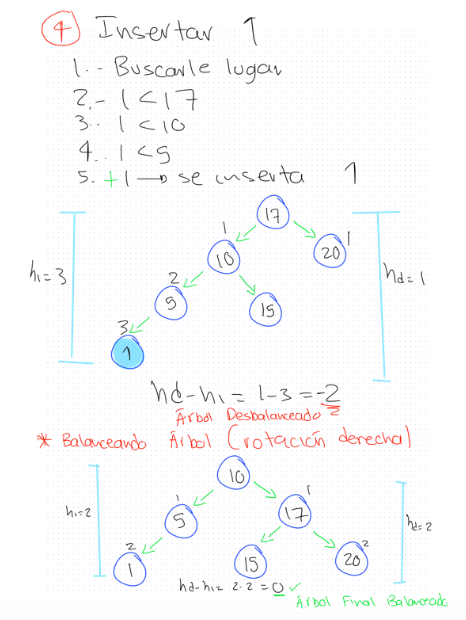 4 Insertar 1
1.- Buscarle lugar
2.- 1 < 17
3.. 1 < 10
4.. 1 < 5
5. +1 → se inserta 1
17
1
10
20
1
hi=3
2
5
15
hd=1
3
1
hd-hi = 1-3 = -2
Árbol Desbalanceado
* Balanceando Árbol (rotación derecha)
10
hi=2
1
5
1
17
hd=2
2
1
15
20
2
hd-hi= 2-2 = 0 ✓
Árbol Final Balanceado